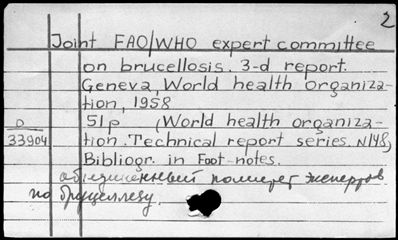 2
Joint FAO/WHO expert committee
on brucellosis. 3-d report.
Geneva, World health organiza-
tion, 1958
51p (World health organiza-
D
33904
tion. Technical report series. N148)
Bibliogr. in Foot-notes.
объединенный комитет экспертов
по бруцеллезу.